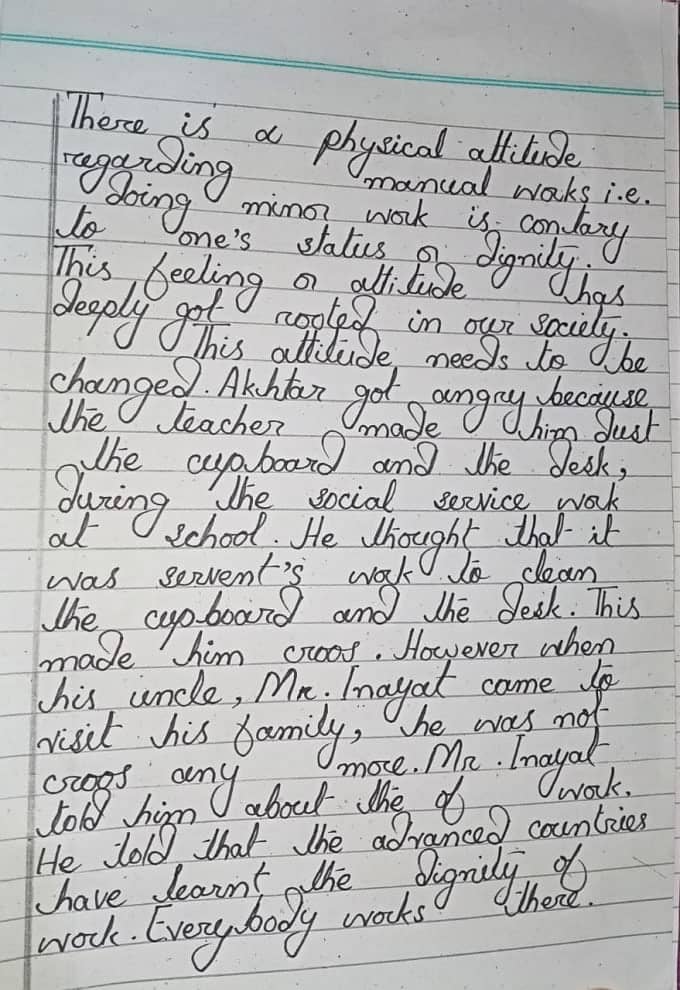 There is a physical attitude
regarding manual works i.e.
doing minor work is contary
to one's status or dignity.
This feeling or attitude has
deeply got rooted in our society.
This attitude needs to be
changed. Akhtar got angry because
the teacher made him dust
the cupboard and the desk,
during the social service work
at school. He thought that it
was servent's work to clean
the cupboard and the desk. This
made him croos. However when
his uncle, Mr. Inayat came to
visit his family, he was not
croos any more. Mr. Inayat
told him about the of work.
He told that the advanced countries
have learnt the dignity of
work. Everybody works there.